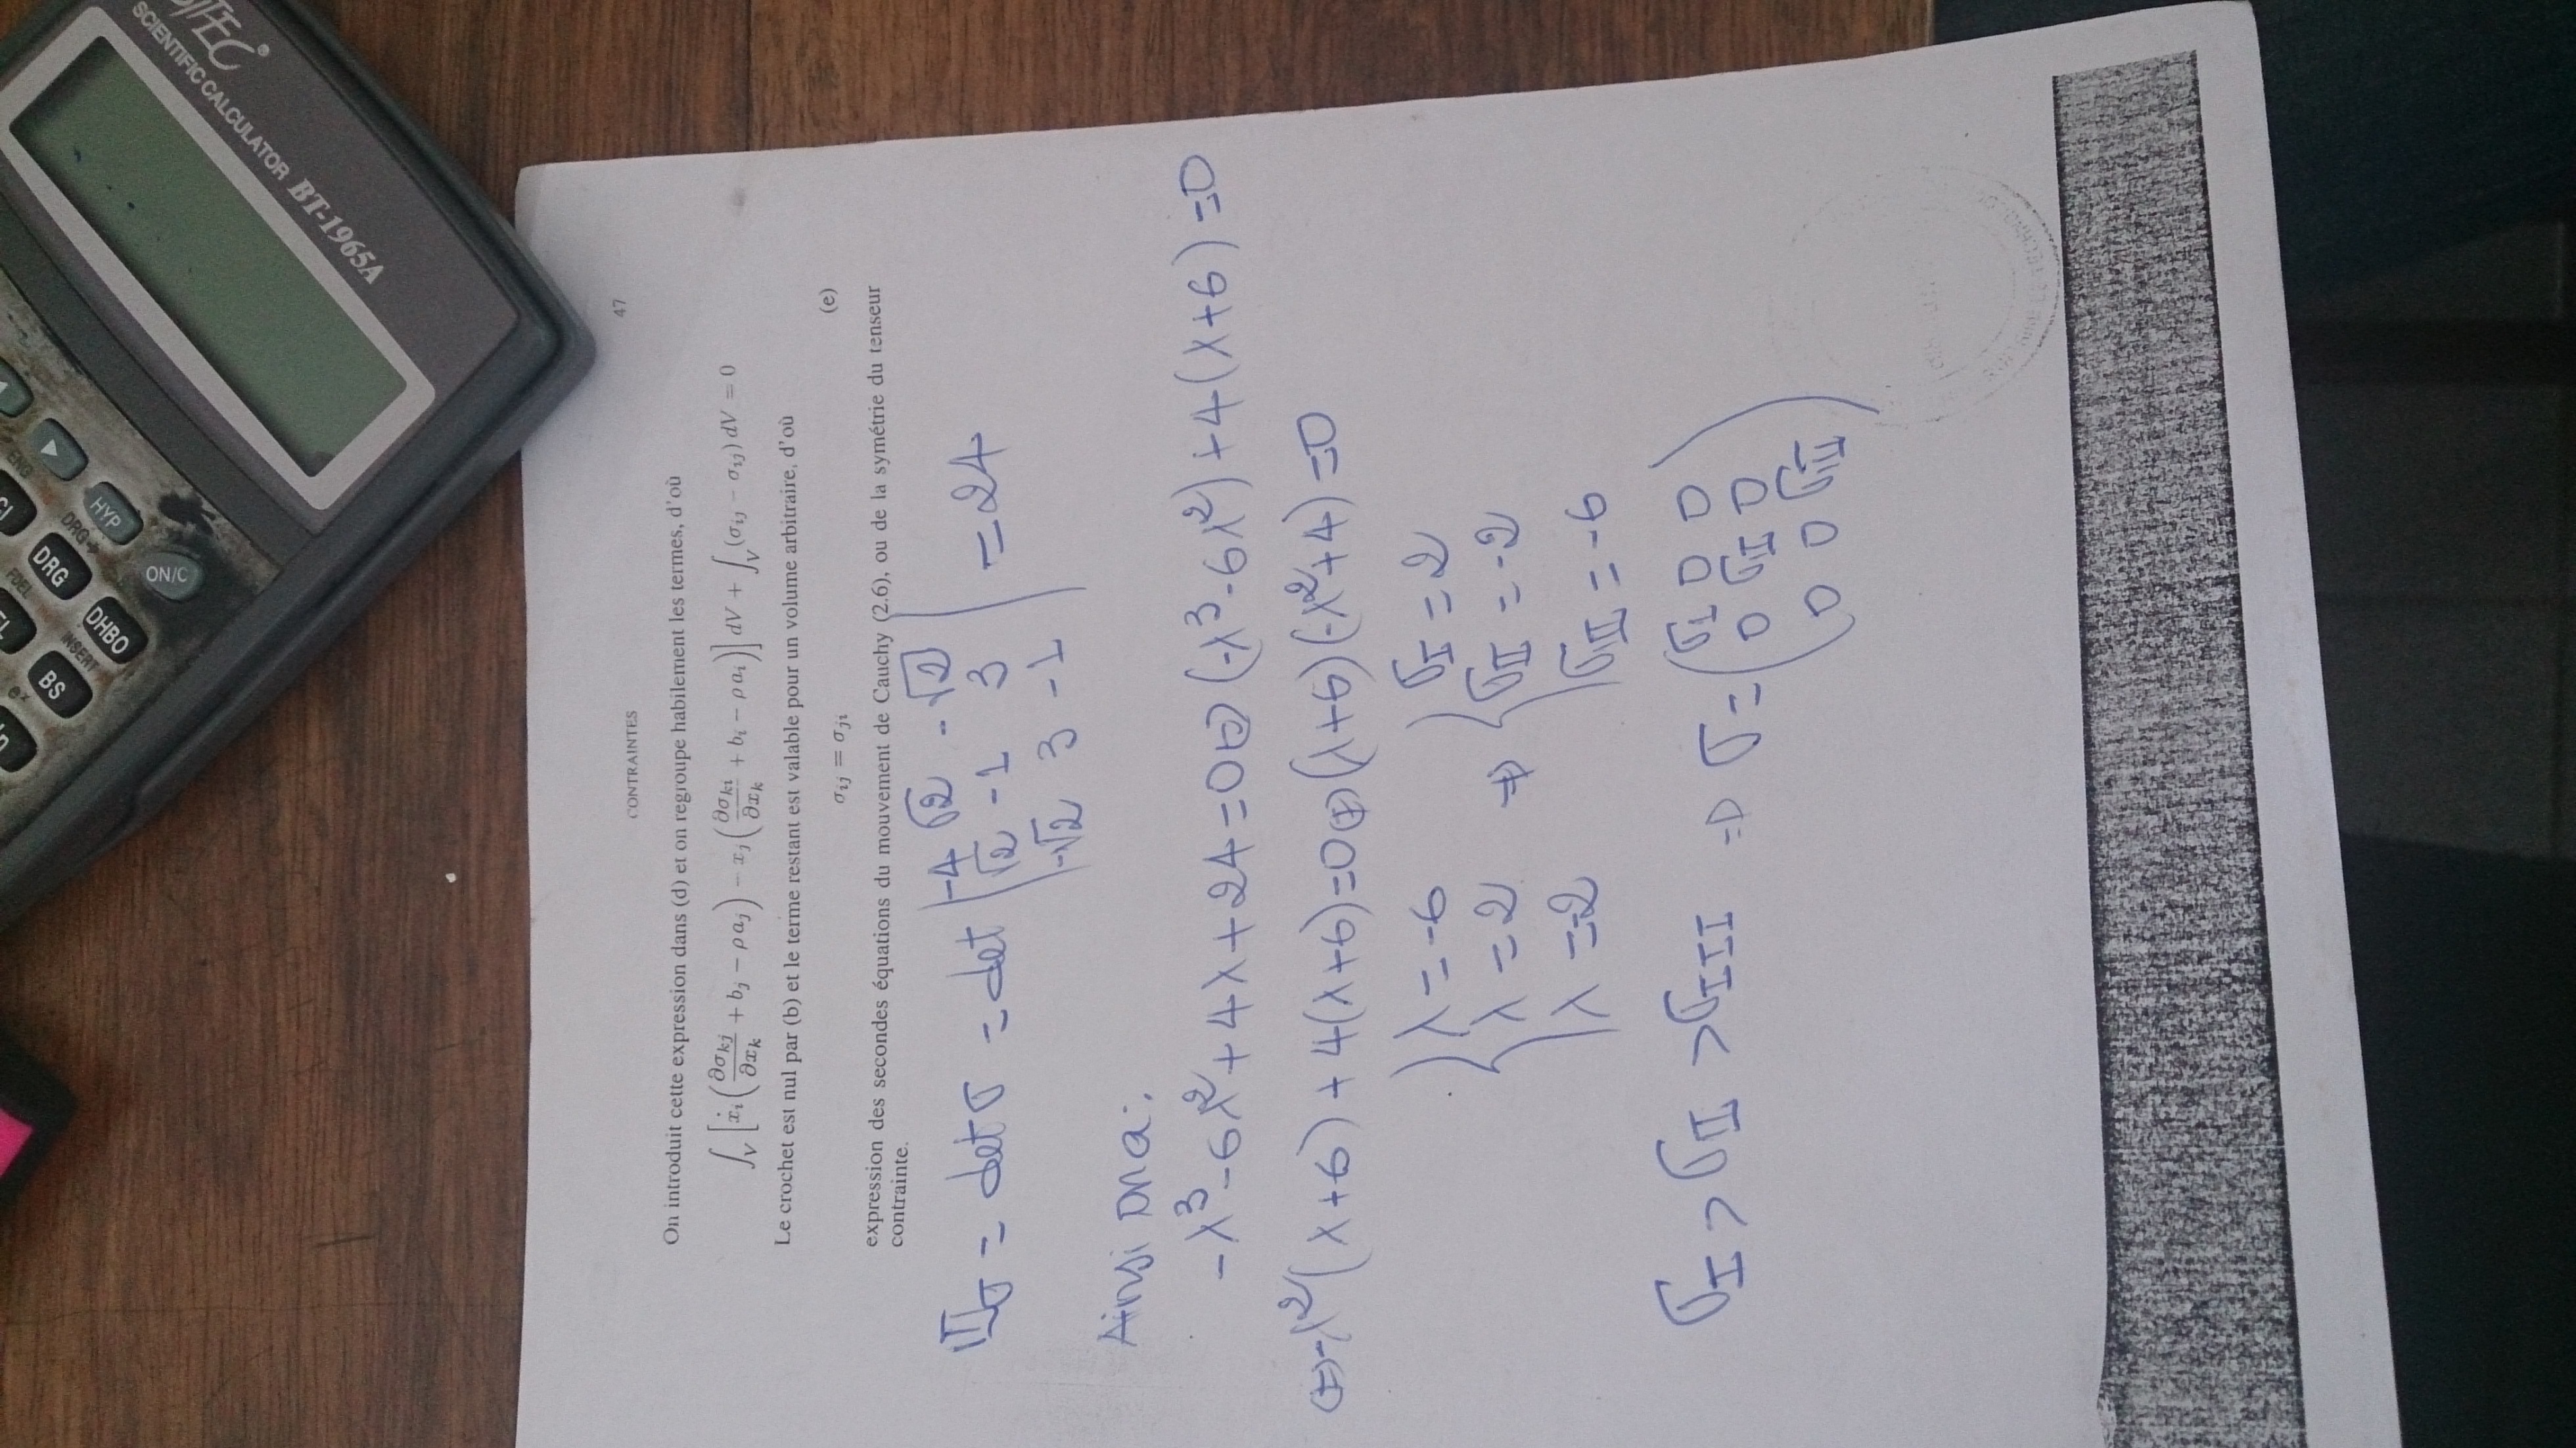 BS
INSERT
DRG
DRG→
FUEL
DHBO
HYP
ON/C
SCIENTIFIC CALCULATOR BT-1965A
CONTRAINTES
47
On introduit cette expression dans (d) et on regroupe habilement les termes, d'où
∫_V [ẋ_i(∂σ_kj/∂x_k + b_j − ρa_j) − x_j(∂σ_ki/∂x_k + b_i − ρa_i)] dV + ∫_V (σ_ij − σ_ij) dV = 0
Le crochet est nul par (b) et le terme restant est valable pour un volume arbitraire, d'où
σ_ij = σ_ji (e)
expression des secondes équations du mouvement de Cauchy (2.6), ou de la symétrie du tenseur
contrainte.
III_σ = det σ = det | -4 √2 -√2 | = 24
√2 -1 3
-√2 3 -1
Ainsi on a:
-λ³ - 6λ² + 4λ + 24 = 0 ⇔ (-λ³ - 6λ²) + 4(λ+6) = 0
⇔ -λ²(λ+6) + 4(λ+6) = 0 ⇔ (λ+6)(-λ²+4) = 0
λ = -6 σ_I = 2
λ = 2 ⇒ σ_II = -2
λ = -2 σ_III = -6
σ_I > σ_II > σ_III ⇒ σ = ( σ_I 0 0
0 σ_II 0
0 0 σ_III )